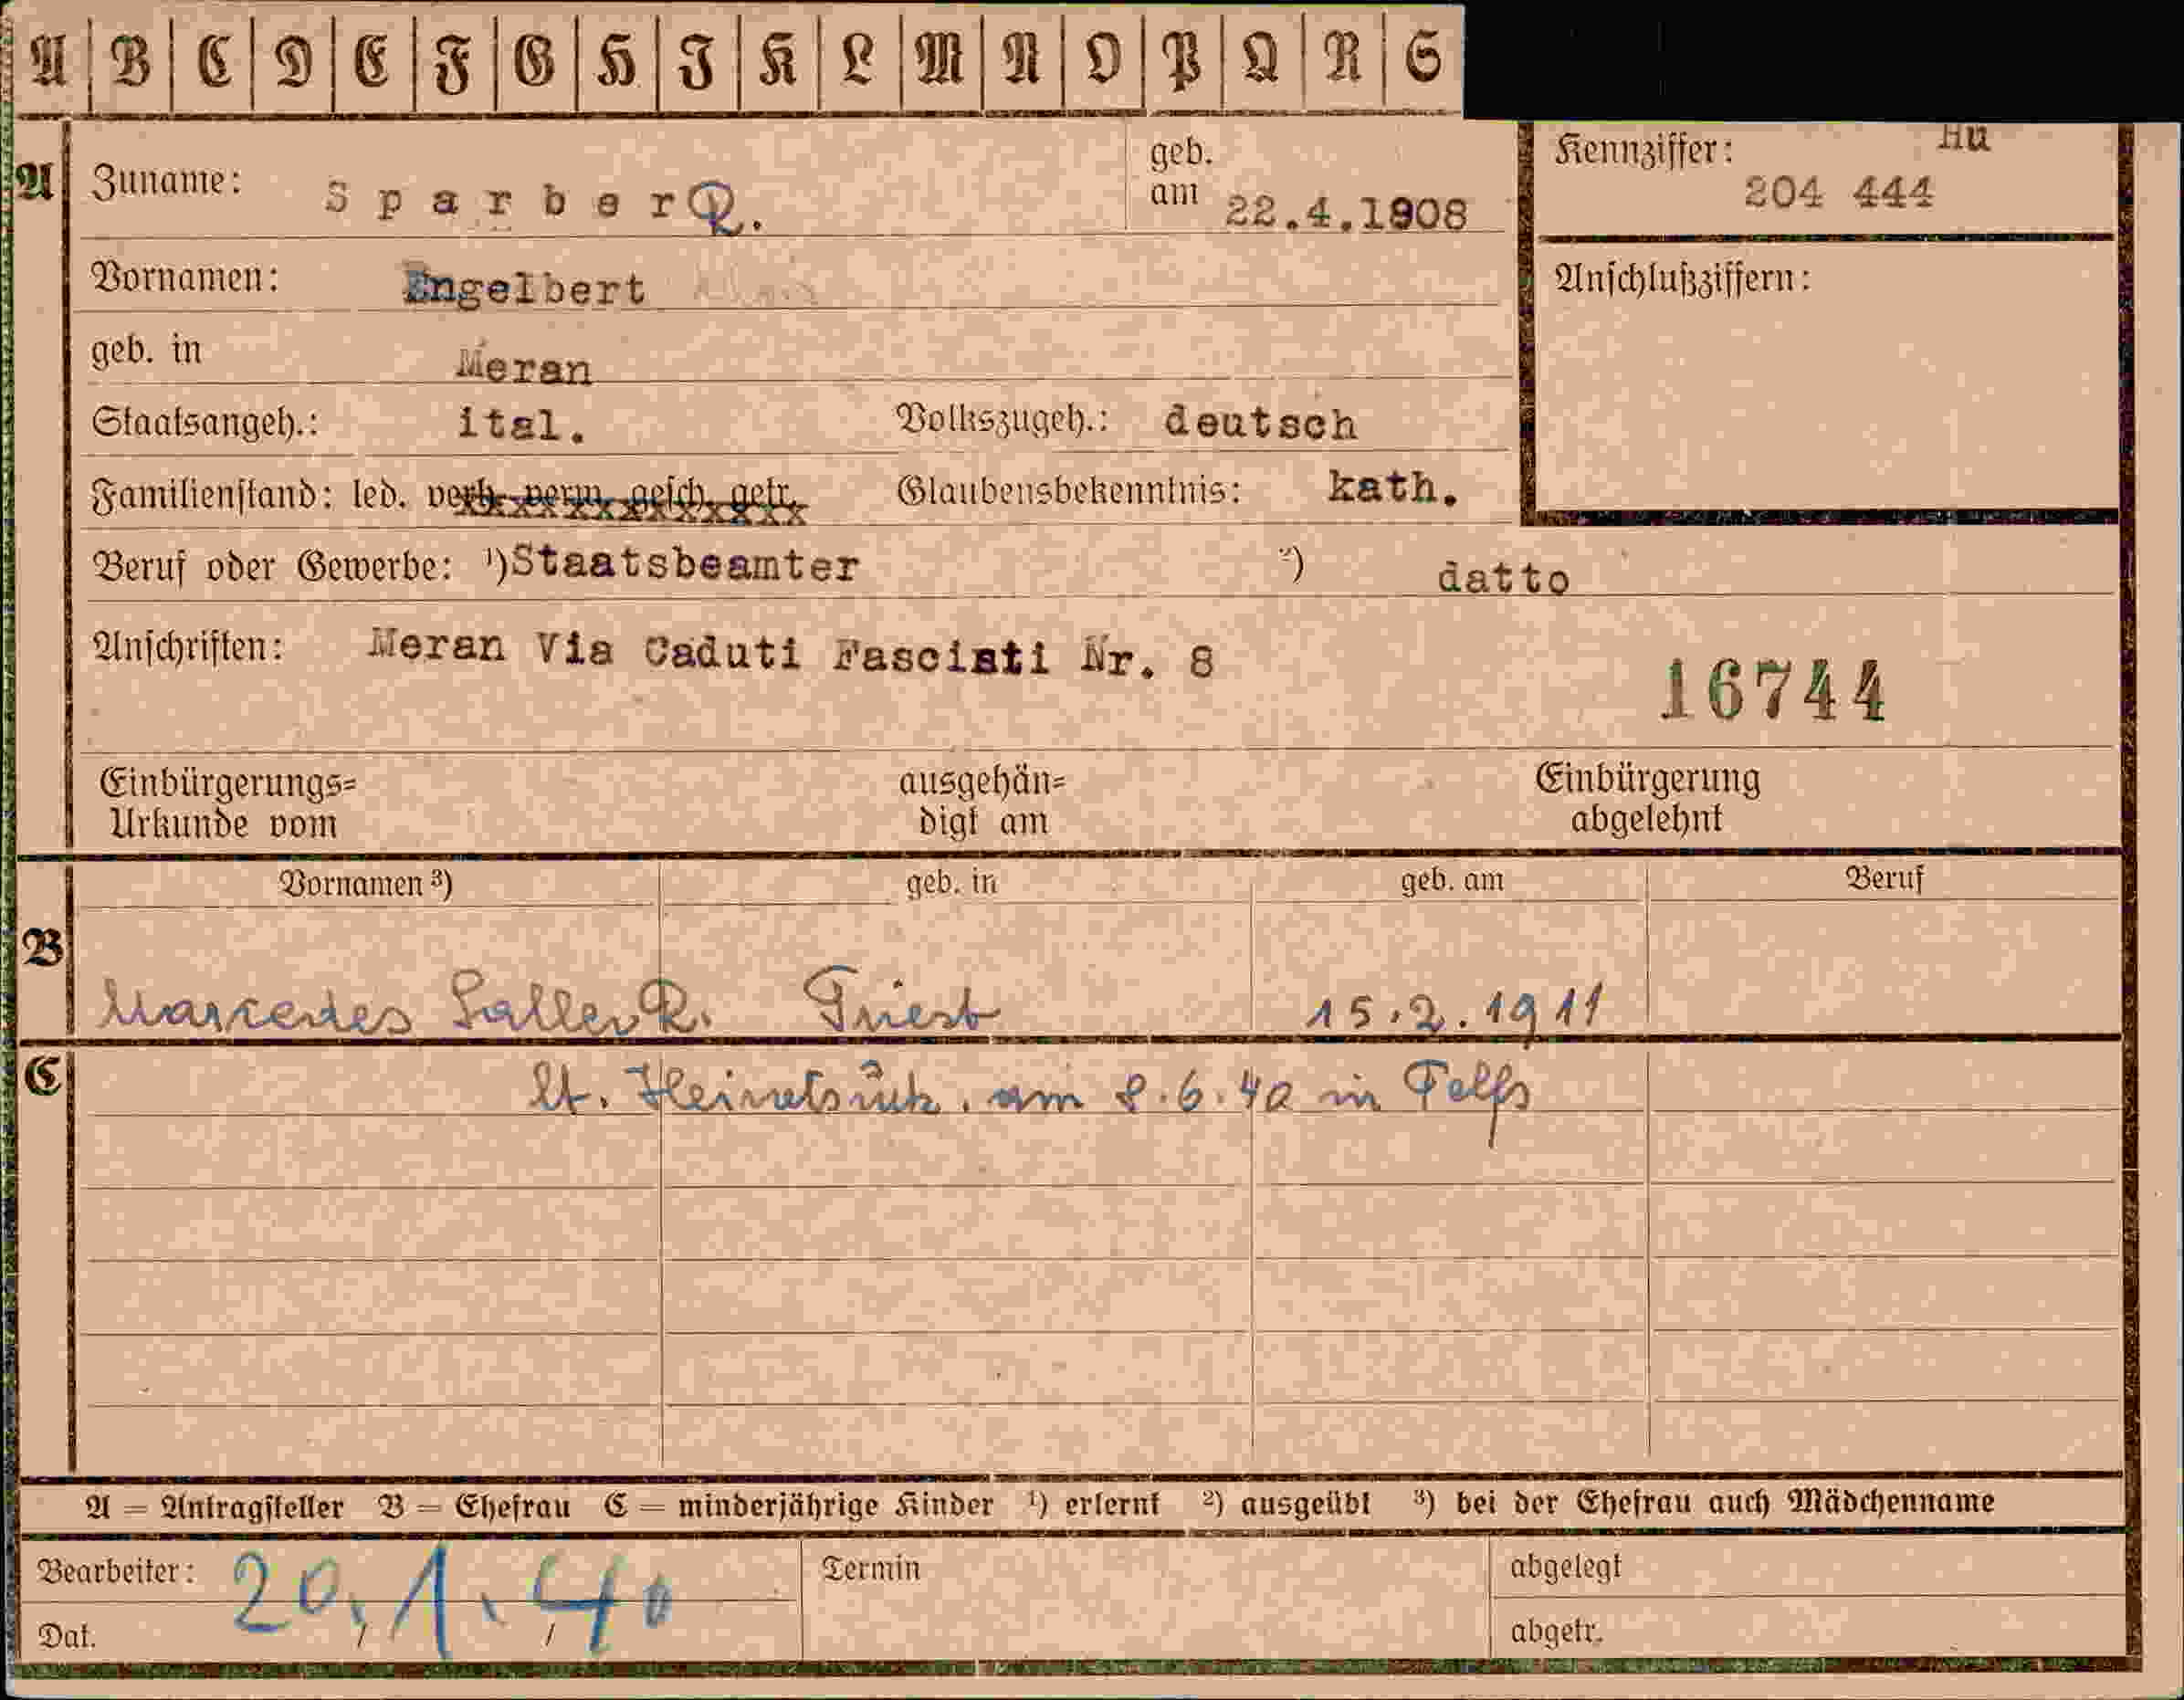 A B C D E F G H I K L M N O P Q R S
A Zuname: Sparber R. geb. am 22.4.1908 Kennziffer: Hü 204 444
Vornamen: Engelbert Anschlußziffern:
geb. in Meran
Staatsangeh.: ital. Volkszugeh.: deutsch
Familienstand: led. verh. verw. gesch. getr. Glaubensbekenntnis: kath.
Beruf oder Gewerbe: ¹)Staatsbeamter ²) datto
Anschriften: Meran Via Caduti Fascisti Nr. 8
16744
Einbürgerungs= ausgehän= Einbürgerung
Urkunde vom digt am abgelehnt
Vornamen ³) geb. in geb. am Beruf
B
Marcedes Saller R. Triest 15.2.1911
C lt. am 8.6.40 in Telfs
A = Antragsteller B = Ehefrau C = minderjährige Kinder ¹) erlernt ²) ausgeübt ³) bei der Ehefrau auch Mädchenname
Bearbeiter: 20.1.40 Termin abgelegt
Dat. abgetr.